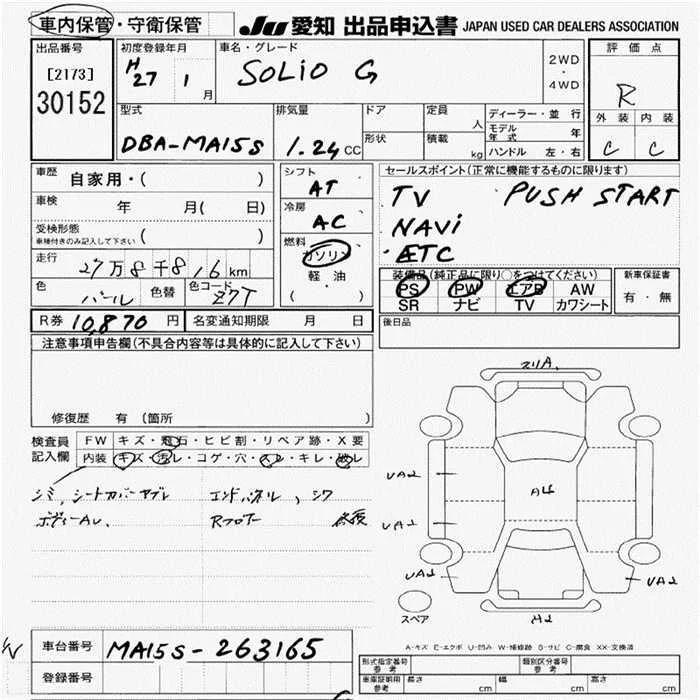 車内保管・守衛保管 JU 愛知 出品申込書 JAPAN USED CAR DEALERS ASSOCIATION
出品番号 初度登録年月 車名・グレード 評価点
[2173] H27 1月 SOLIO G 2WD・4WD R
30152
型式 排気量 ドア 定員 人 ディーラー・並行 外装 内装
DBA-MA15S 1.24 CC 形状 積載 kg モデル年式 年 C C
ハンドル 左・右
車歴 自家用・( ) シフト AT セールスポイント(正常に機能するものに限ります)
車検 年 月( 日) 冷房 AC TV PUSH START
受検形態 車検付きのみ記入して下さい ( ) NAVi
燃料 ガソリン ETC
走行 27万8千816km 軽油 装備品(純正品に限り○をつけてください) 新車保証書
色 パール 色替 色コード Z7T ( ・ ) PS PW エアB AW 有・無
SR ナビ TV カワシート
R券 10,870円 名変通知期限 月 日 後日品
注意事項申告欄(不具合内容等は具体的に記入して下さい)
修復歴 有 (箇所
検査員記入欄 FW キズ・飛石・ヒビ割・リペア跡・X要
内装 キズ・汚レ・コゲ・穴・スレ・キレ・破レ
シミ、シートカバーヤブレ エンドパネル、シワ
ボディーAU、 Rフロアー 修復
A4
UA2
UA2
UA2 UA2
スペア A2
A-キズ E-エクボ U-凹み W-補修跡 S-サビ C-腐食 XX-交換済
車台番号 MA15S-263165
登録番号
形式指定番号 参考 類別区分番号 参考
車庫証明用 参考 長さ cm 幅 cm 高さ cm